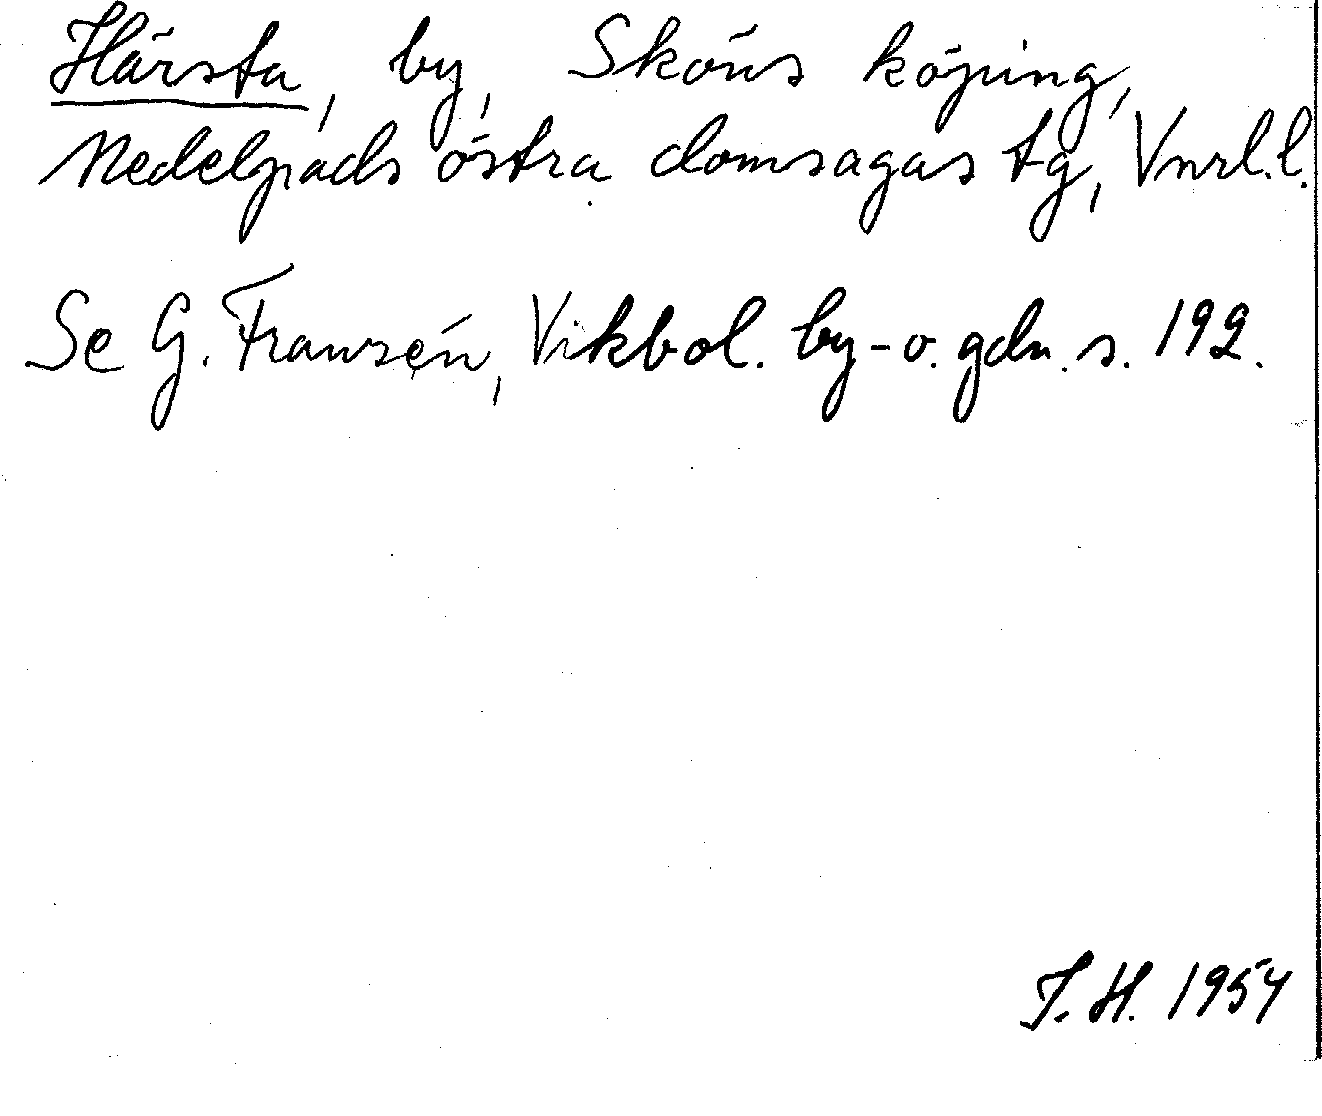 Härsta, by, Sköns köping,
Medelpads östra domsagas tg, Vnrl.l.
Se G. Franzén, Vikbol. by- o. gdn. s. 192.
T.H. 1954